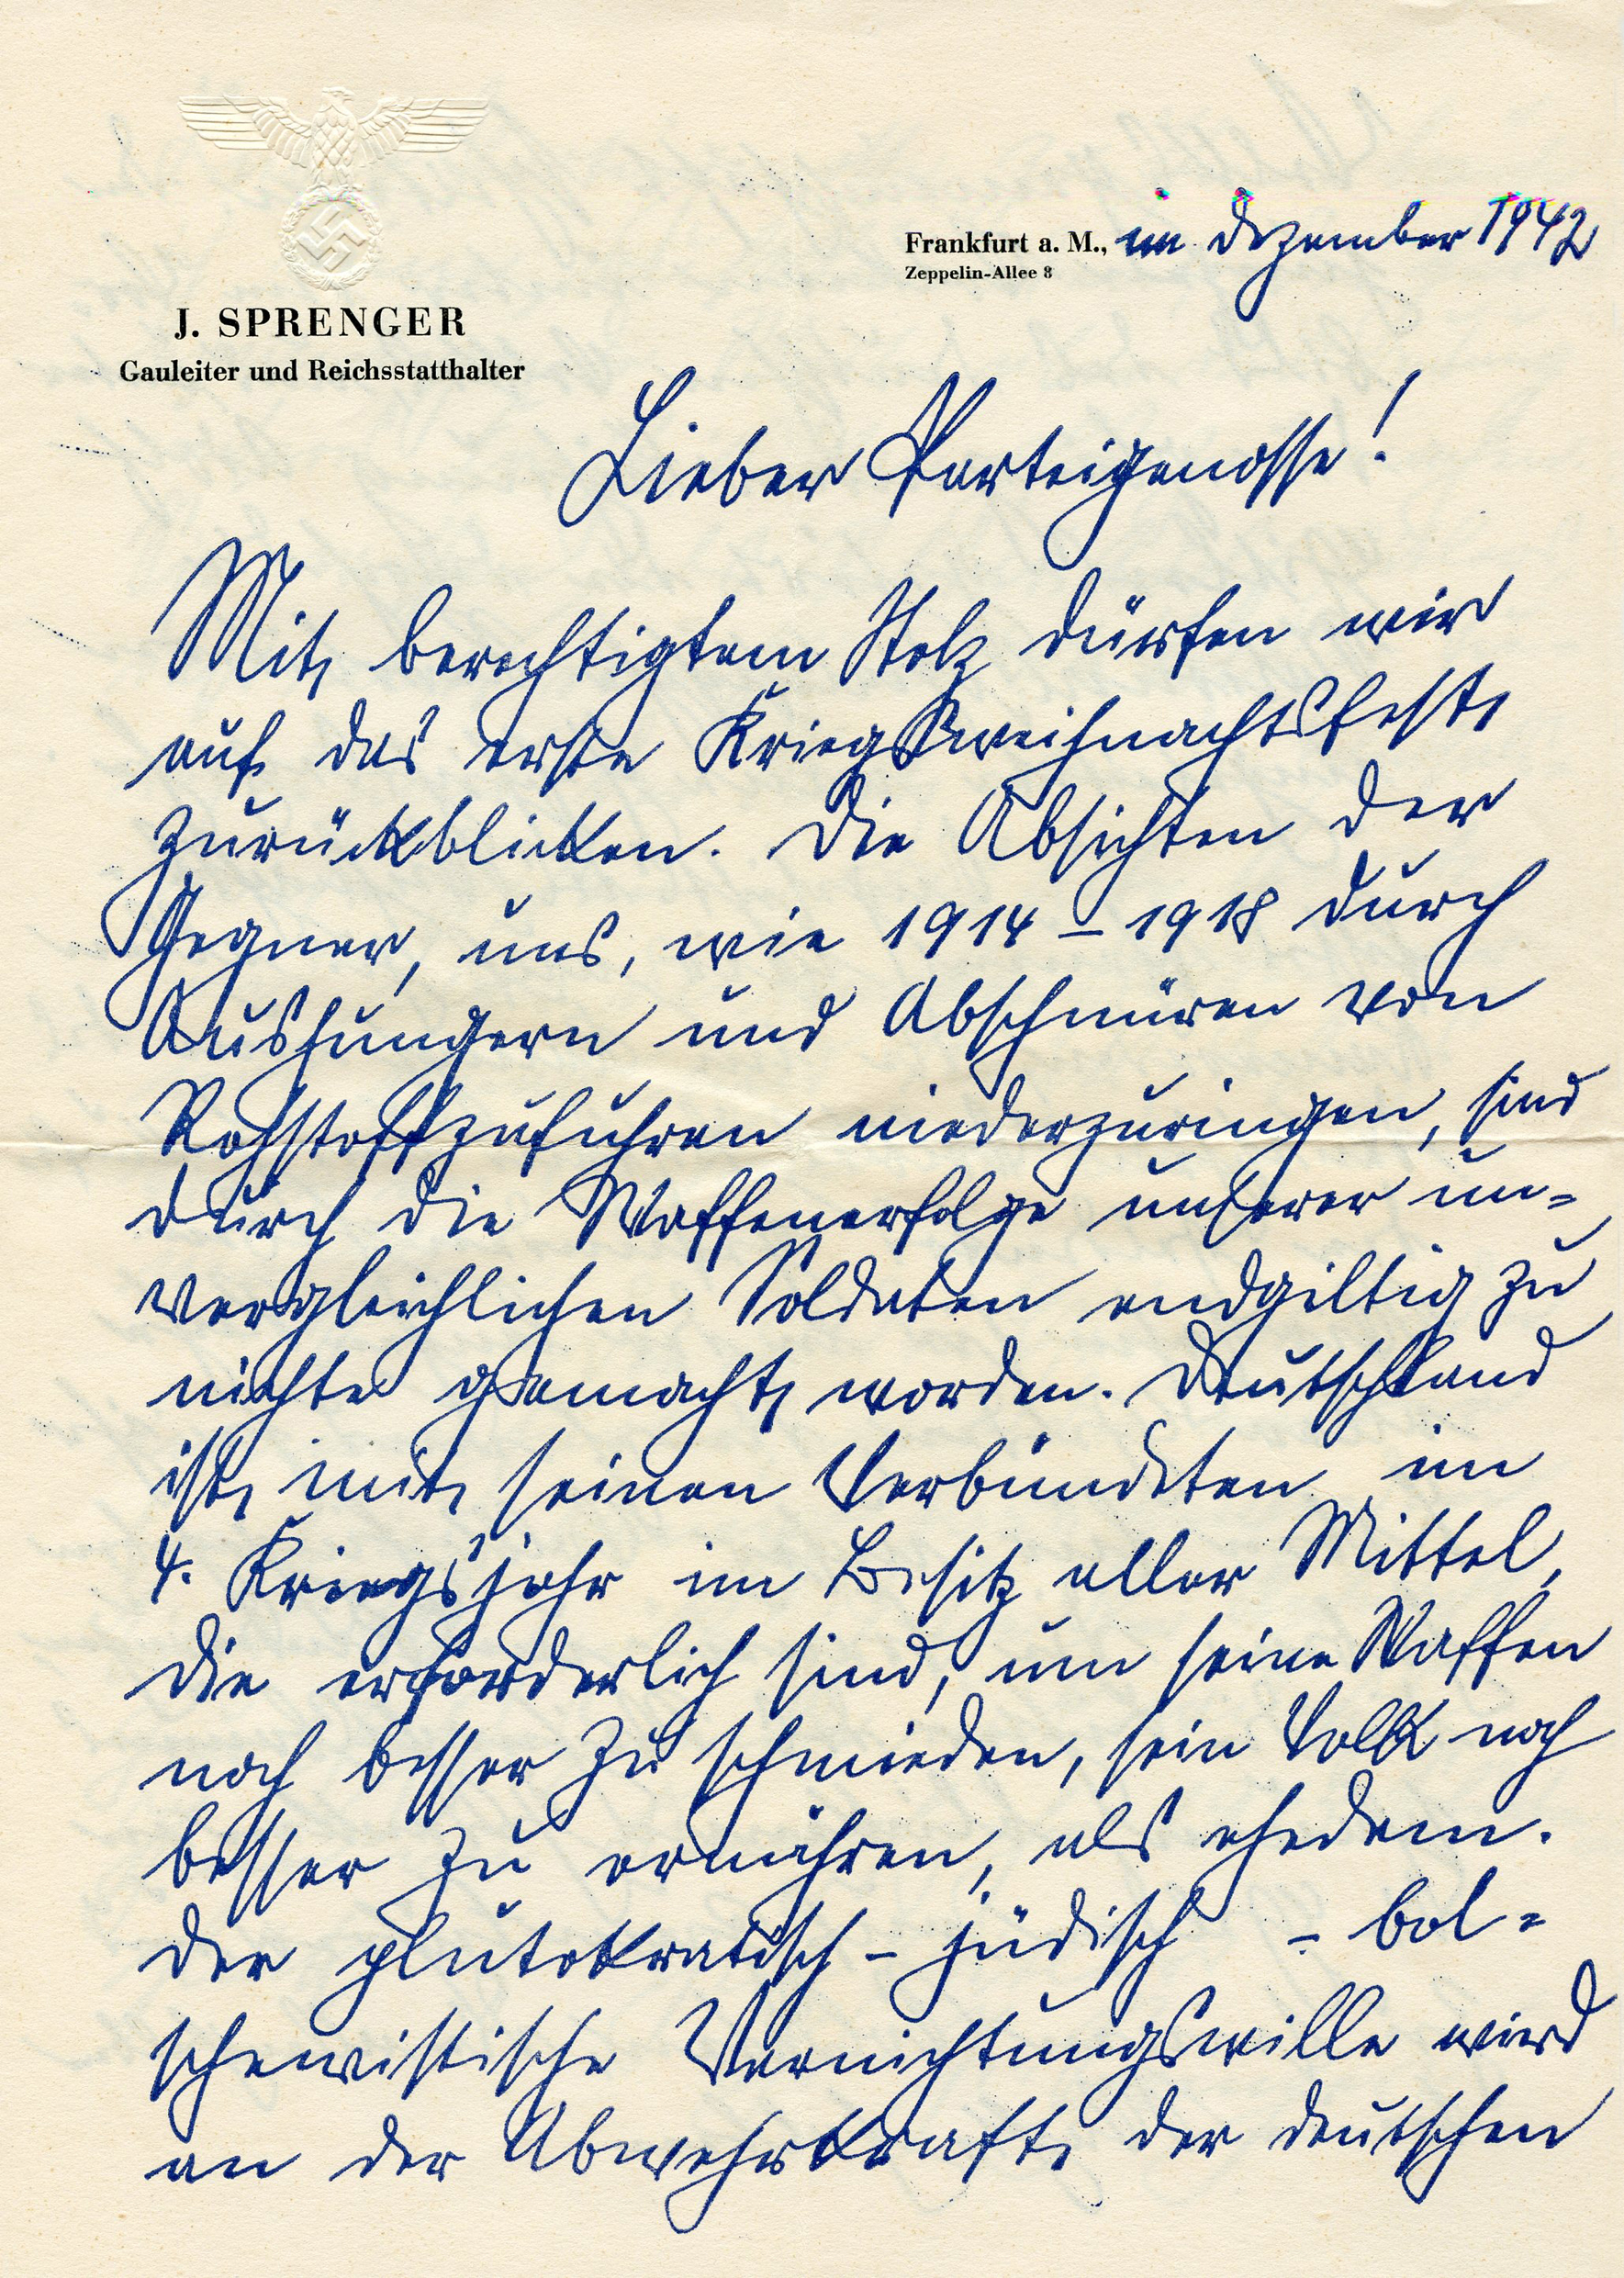 J. SPRENGER
Gauleiter und Reichsstatthalter
Frankfurt a. M., im Dezember 1942
Zeppelin-Allee 8
Lieber Parteigenosse!
Mit berechtigtem Stolz dürfen wir
auf das erste Kriegsweihnachtsfest
zurückblicken. Die Absichten der
Gegner, uns, wie 1914 – 1918 durch
Aushungern und Abschnüren von
Rohstoffzufuhren niederzuringen, sind
durch die Waffenerfolge unserer un=
vergleichlichen Soldaten endgiltig zu
nichte gemacht worden. Deutschland
ist mit seinen Verbündeten im
4. Kriegsjahr im Besitz aller Mittel,
die erforderlich sind, um seine Waffen
noch besser zu schmieden, sein Volk noch
besser zu ernähren, als ehedem.
Der plutokratisch – jüdisch – bol=
schewistische Vernichtungswille wird
an der Abwehrkraft der deutschen